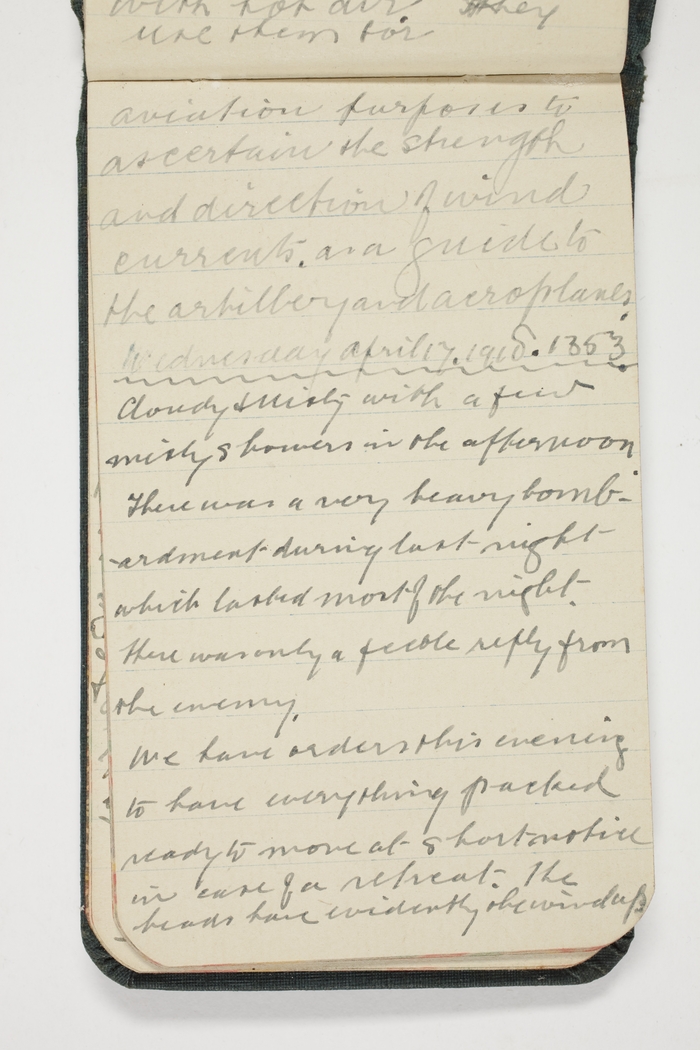 with hot air they
use them for
aviation purposes to
ascertain the strength
and direction of wind
currents. as a guide to
the artillery and aeroplanes
Wednesday April 17. 1918. 1353
Cloudy & Misty with a few
misty showers in the afternoon
There was a very heavy bomb-
-ardment during last night
which lasted most of the night.
There was only a feeble reply from
the enemy.
We have orders this evening
to have everything packed
ready to move at short notice
in case of a retreat. The
heads have evidently the wind up